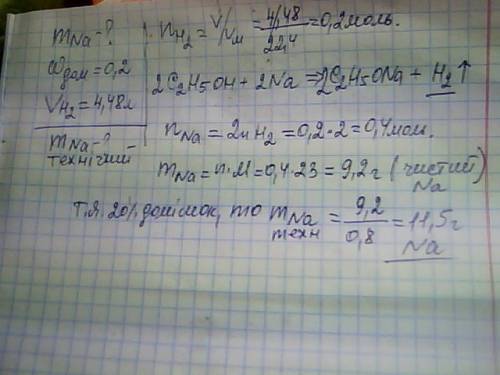 mNa - ?
ωдом = 0,2
VH2 = 4,48л
mNa - ?
технічний -
nH2 = V/VM = 4,48/22,4 = 0,2 моль.
2C2H5OH + 2Na → 2C2H5ONa + H2↑
nNa = 2nH2 = 0,2·2 = 0,4 мол.
mNa = n·M = 0,4·23 = 9,2г (чистий
Na)
т.я. 20% домішок, то mNa = 9,2/0,8 = 11,5г
техн
Na